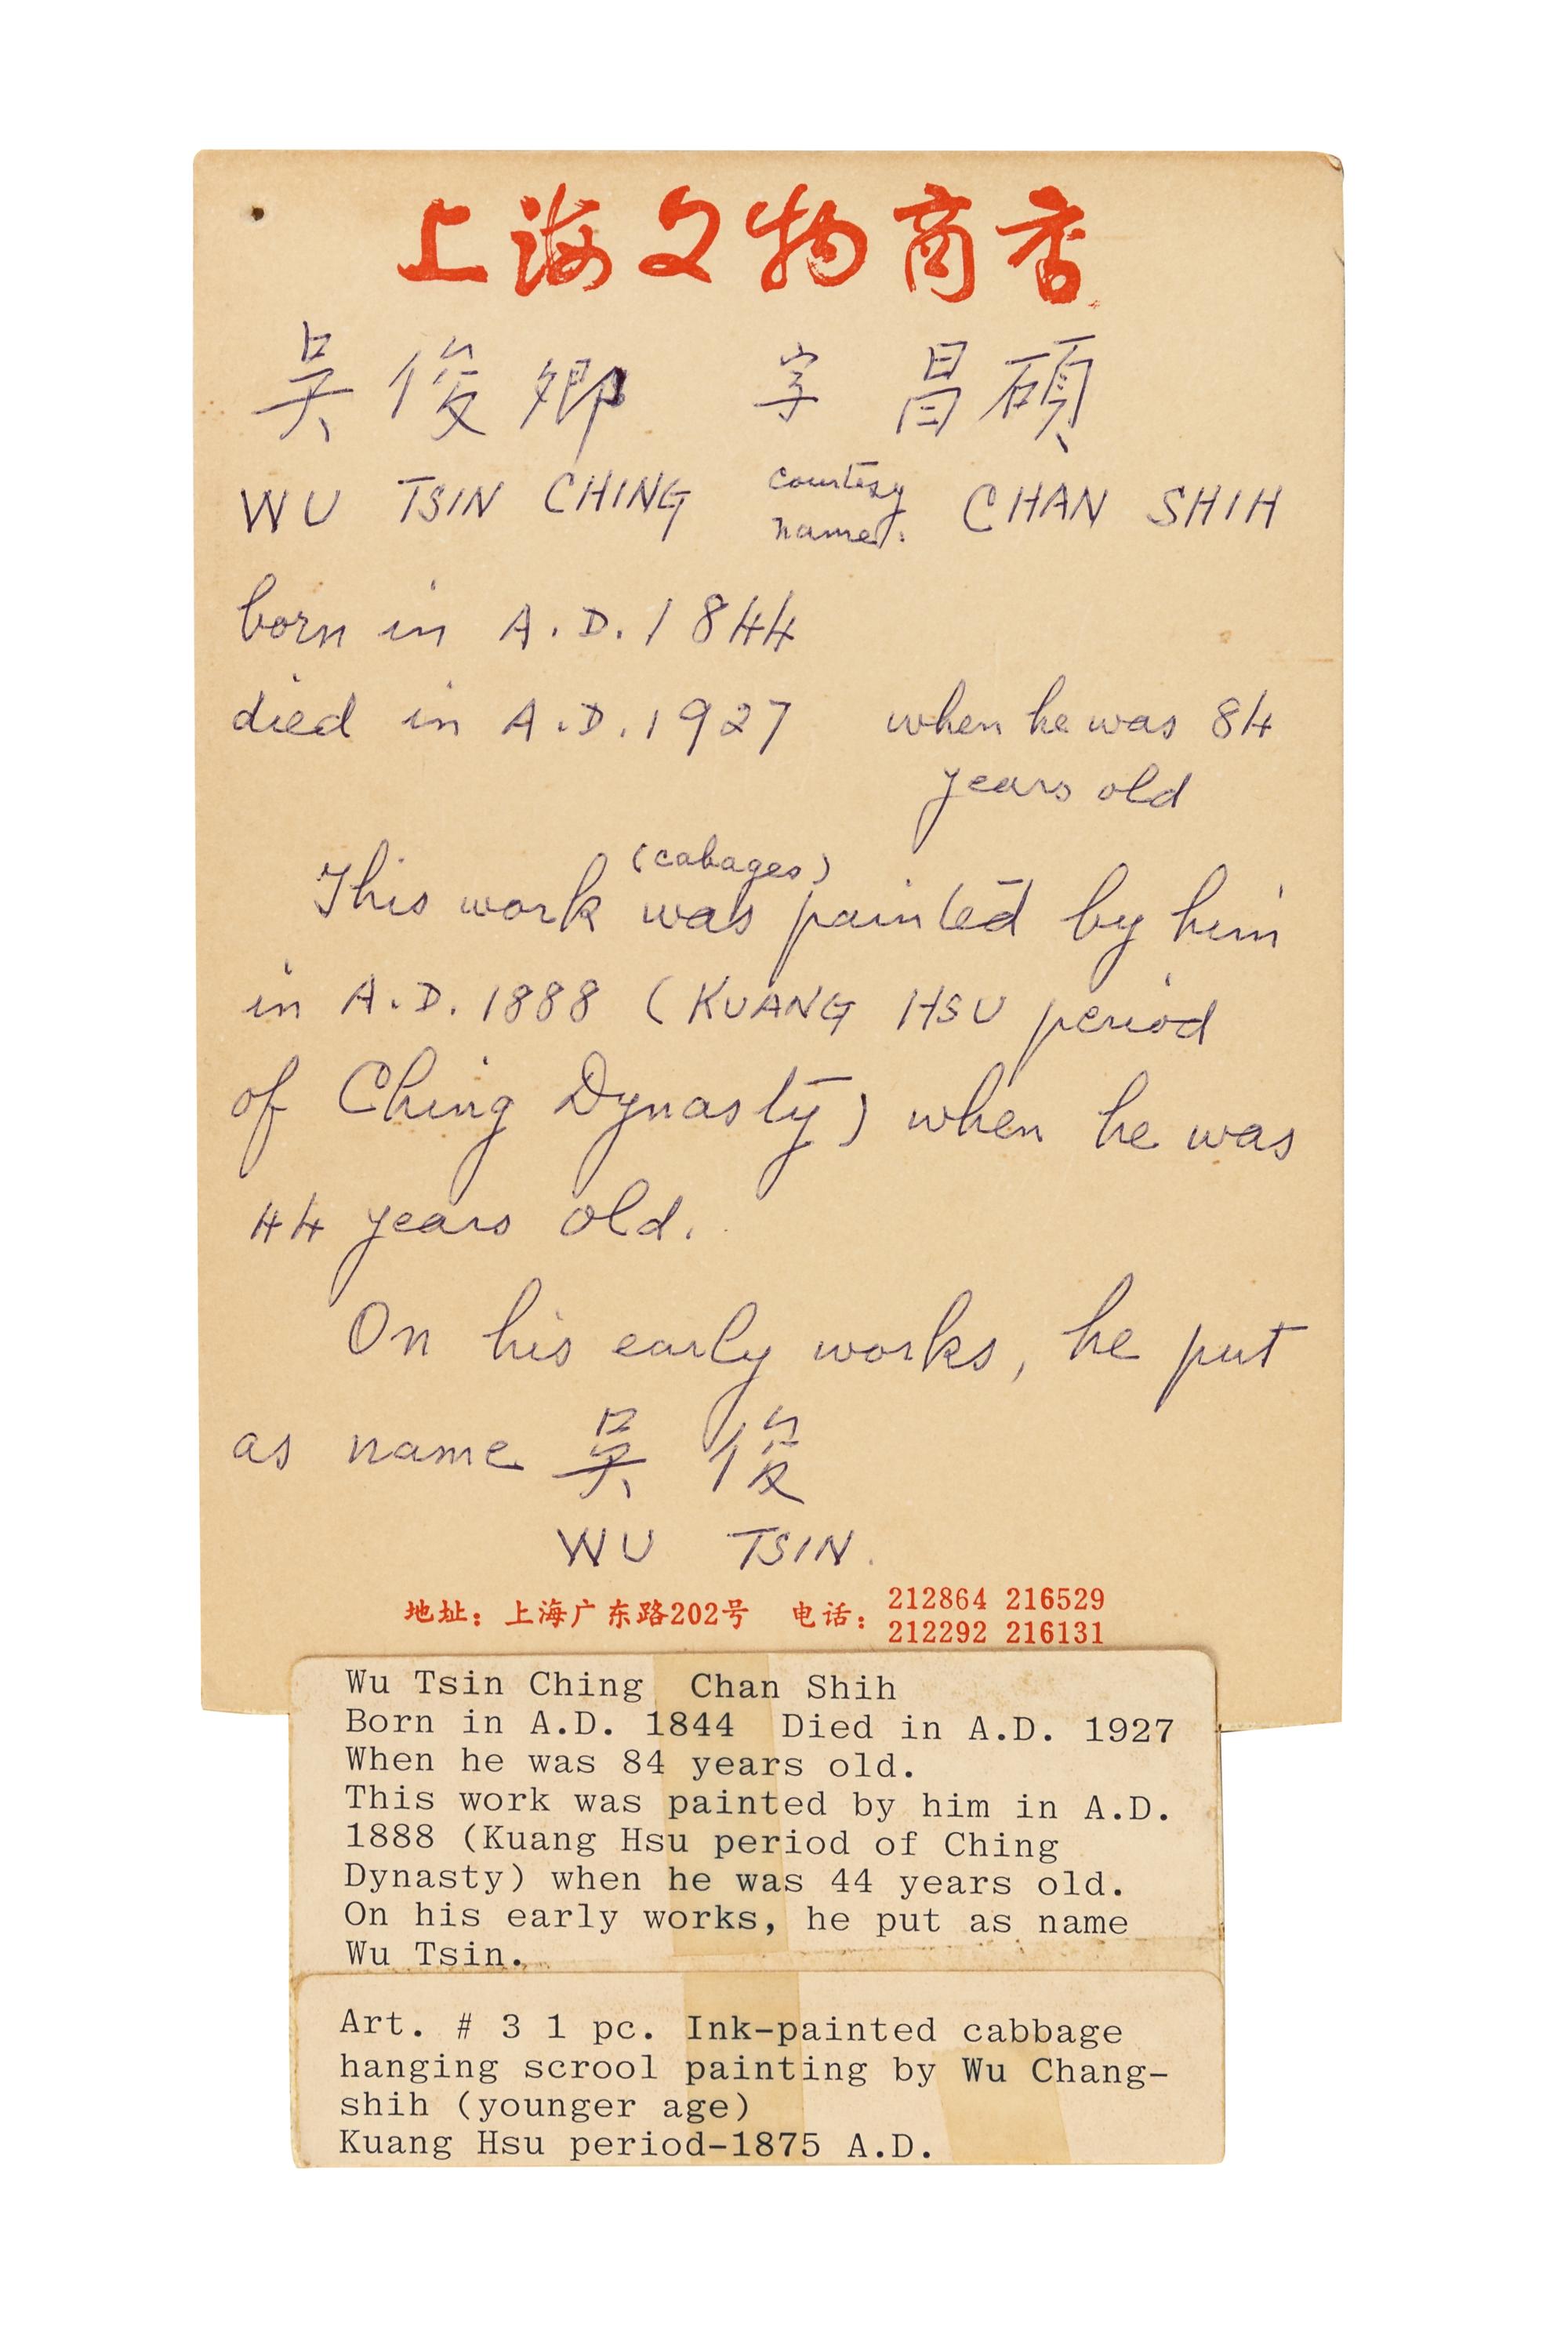 上海文物商店
吳俊卿 字 昌碩
WU TSIN CHING courtesy name: CHAN SHIH
born in A.D. 1844
died in A.D. 1927 when he was 84
years old
(cabages)
This work was painted by him
in A.D. 1888 (KUANG HSU period
of Ching Dynasty) when he was
44 years old.
On his early works, he put
as name 吳 俊
WU TSIN.
地址：上海广东路202号 电话：212864 216529
212292 216131
Wu Tsin Ching Chan Shih
Born in A.D. 1844 Died in A.D. 1927
When he was 84 years old.
This work was painted by him in A.D.
1888 (Kuang Hsu period of Ching
Dynasty) when he was 44 years old.
On his early works, he put as name
Wu Tsin.
Art. # 3 1 pc. Ink-painted cabbage
hanging scrool painting by Wu Chang-
shih (younger age)
Kuang Hsu period-1875 A.D.